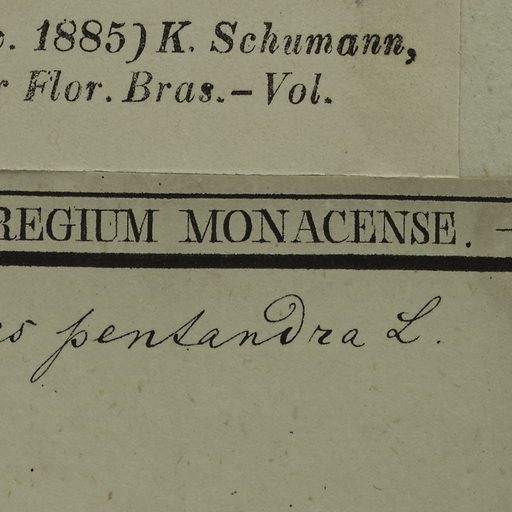 . 1885) K. Schumann,
Flor. Bras. — Vol.
REGIUM MONACENSE. —
pentandra L.